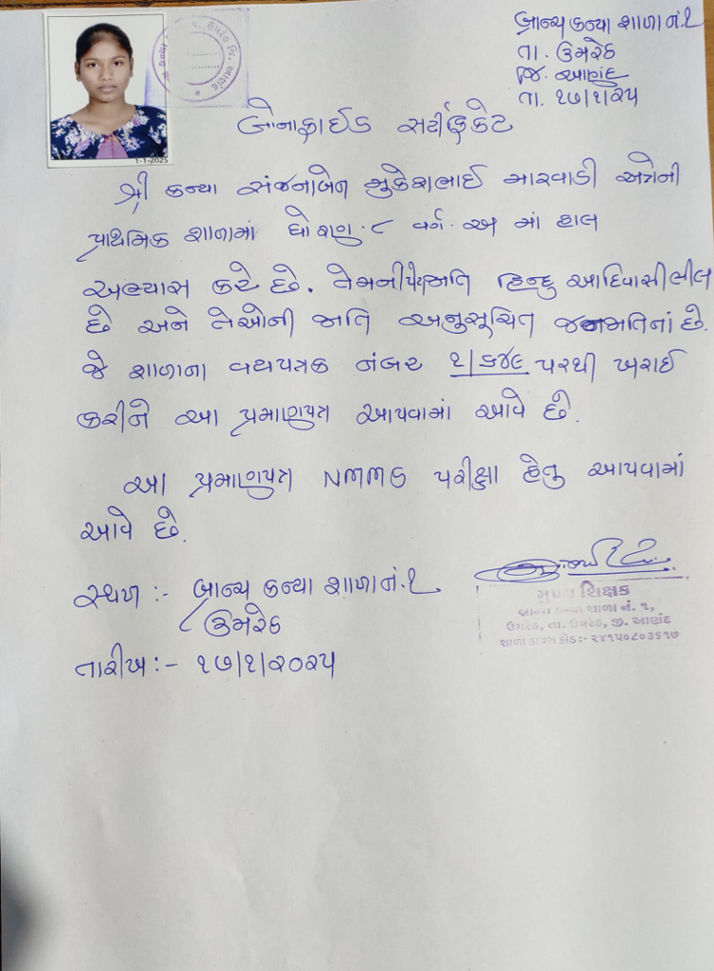 બ્રાન્ચ કન્યા શાળા નં.૧
તા. ઉમરેઠ
જિ. આણંદ
તા. ૧૭/૧/૨૫
1-1-2025
બોનાફાઈડ સર્ટીફિકેટ
શ્રી કન્યા સંજનાબેન મુકેશભાઈ મારવાડી અત્રેની
પ્રાથમિક શાળામાં ધોરણ-૮ વર્ગ-અ માં હાલ
અભ્યાસ કરે છે. તેમની પેટાજાતિ હિન્દુ આદિવાસી ભીલ
છે અને તેઓની જાતિ અનુસૂચિત જનજાતિનાં છે.
જે શાળાના વયપત્રક નંબર ૧/૮૪૯ પરથી ખરાઈ
કરીને આ પ્રમાણપત્ર આપવામાં આવે છે.
આ પ્રમાણપત્ર NMMS પરીક્ષા હેતુ આપવામાં
આવે છે.
સ્થળ :- બ્રાન્ચ કન્યા શાળા નં.૧
ઉમરેઠ
તારીખ :- ૧૭/૧/૨૦૨૫
મુખ્ય શિક્ષક
બ્રાન્ચ કન્યા શાળા નં. ૧,
ઉમરેઠ, તા. ઉમરેઠ, જી. આણંદ
શાળા ડાયસ કોડ:- ૨૪૧૫૦૮૦૩૬૧૭